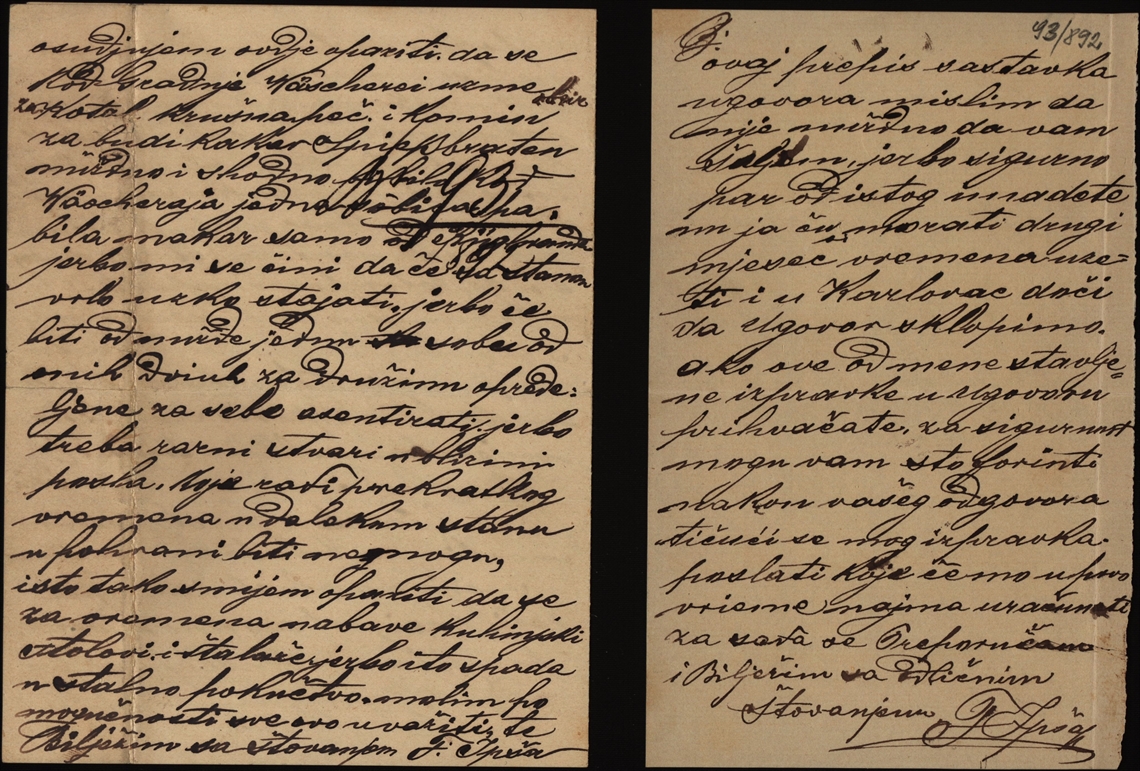 osudjujem ovdje opaziti. da se
kod Gradnje Wäscherei uzme obzir
za kotal. krušnapeč. i Komin
za budi kakav Spiessbraten
nuždno i shodno bi bilo
Wäscheraja jedna soba
bila makar samo od
jerbo mi se čini da če sa stanom
vrlo uzko stajati, jerbo če
biti od nužde jednu sobu od
onih dviuh za družinu opredie=
ljene za sebe asentirati. jerbo
treba razni stvari u blizini
posla, koje radi prekratkog
vremena u dalekum stanu
u pohrani biti nemogu,
isto tako smijem opaziti da se
za vremena nabave kuhinjski
stolovi. i štelaže jerbo ito spada
u stalno pokučstvo. molim po
mogučnosti sve ovo uvažiti, te
Bilježim sa štovanjem F. Ipša
93/892
P.
ovaj prepis sastavka
ugovora mislim da
nije nuždno da vam
šaljem, jerbo sigurno
par od istog imadete
im ja ču morati drugi
mjesec vremena uze=
ti i u Karlovac doči
da Ugovor sklopimo.
ako ove od mene stavlje=
ne izpravke u Ugovoru
prihvačate. za sigurnost
mogu vam sto forinti
nakon vašeg odgovora
tičući se mog izpravka.
poslati koje čemo u prvo
vrieme najma uračunati
za sada se Preporučam
i Bilježim sa odličnim
Štovanjem F. Ipša